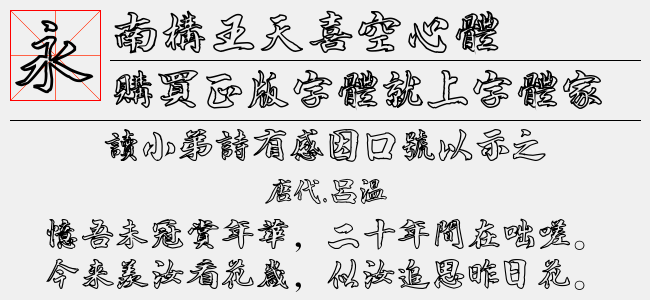 永
南構王天喜空心體
購買正版字體就上字體家
讀小弟詩有感因口號以示之
唐代.呂温
憶吾未冠賞年華，二十年間在咄嗟。
今来羨汝看花歲，似汝追思昨日花。